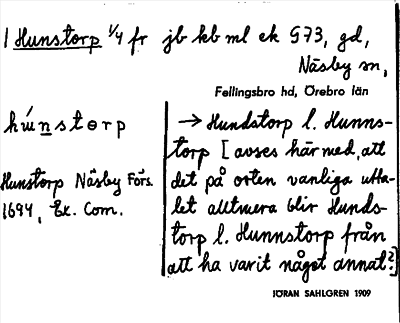 1 Hunstorp 1/4 fr jb kb ml ek G73, gd,
Näsby sn,
Fellingsbro hd, Örebro län
húnstɵrp
Hunstorp Näsby Förs.
1694, Ex. Com.
→ Hundstorp l. Hunns-
torp [avses härmed, att
det på orten vanliga utta-
let alltmera blir Hunds-
torp l. Hunnstorp från
att ha varit något annat?]
JÖRAN SAHLGREN 1909